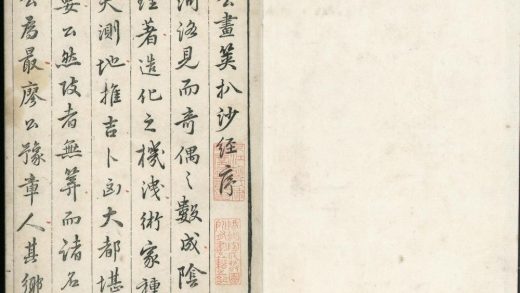 公畫筴扒沙經序
河洛見而奇偶之數成陰
經著造化之機洩術家種
天測地推吉卜凶大都堪
公然攷者無筭而諸名
公為最廖公豫章人其鄉